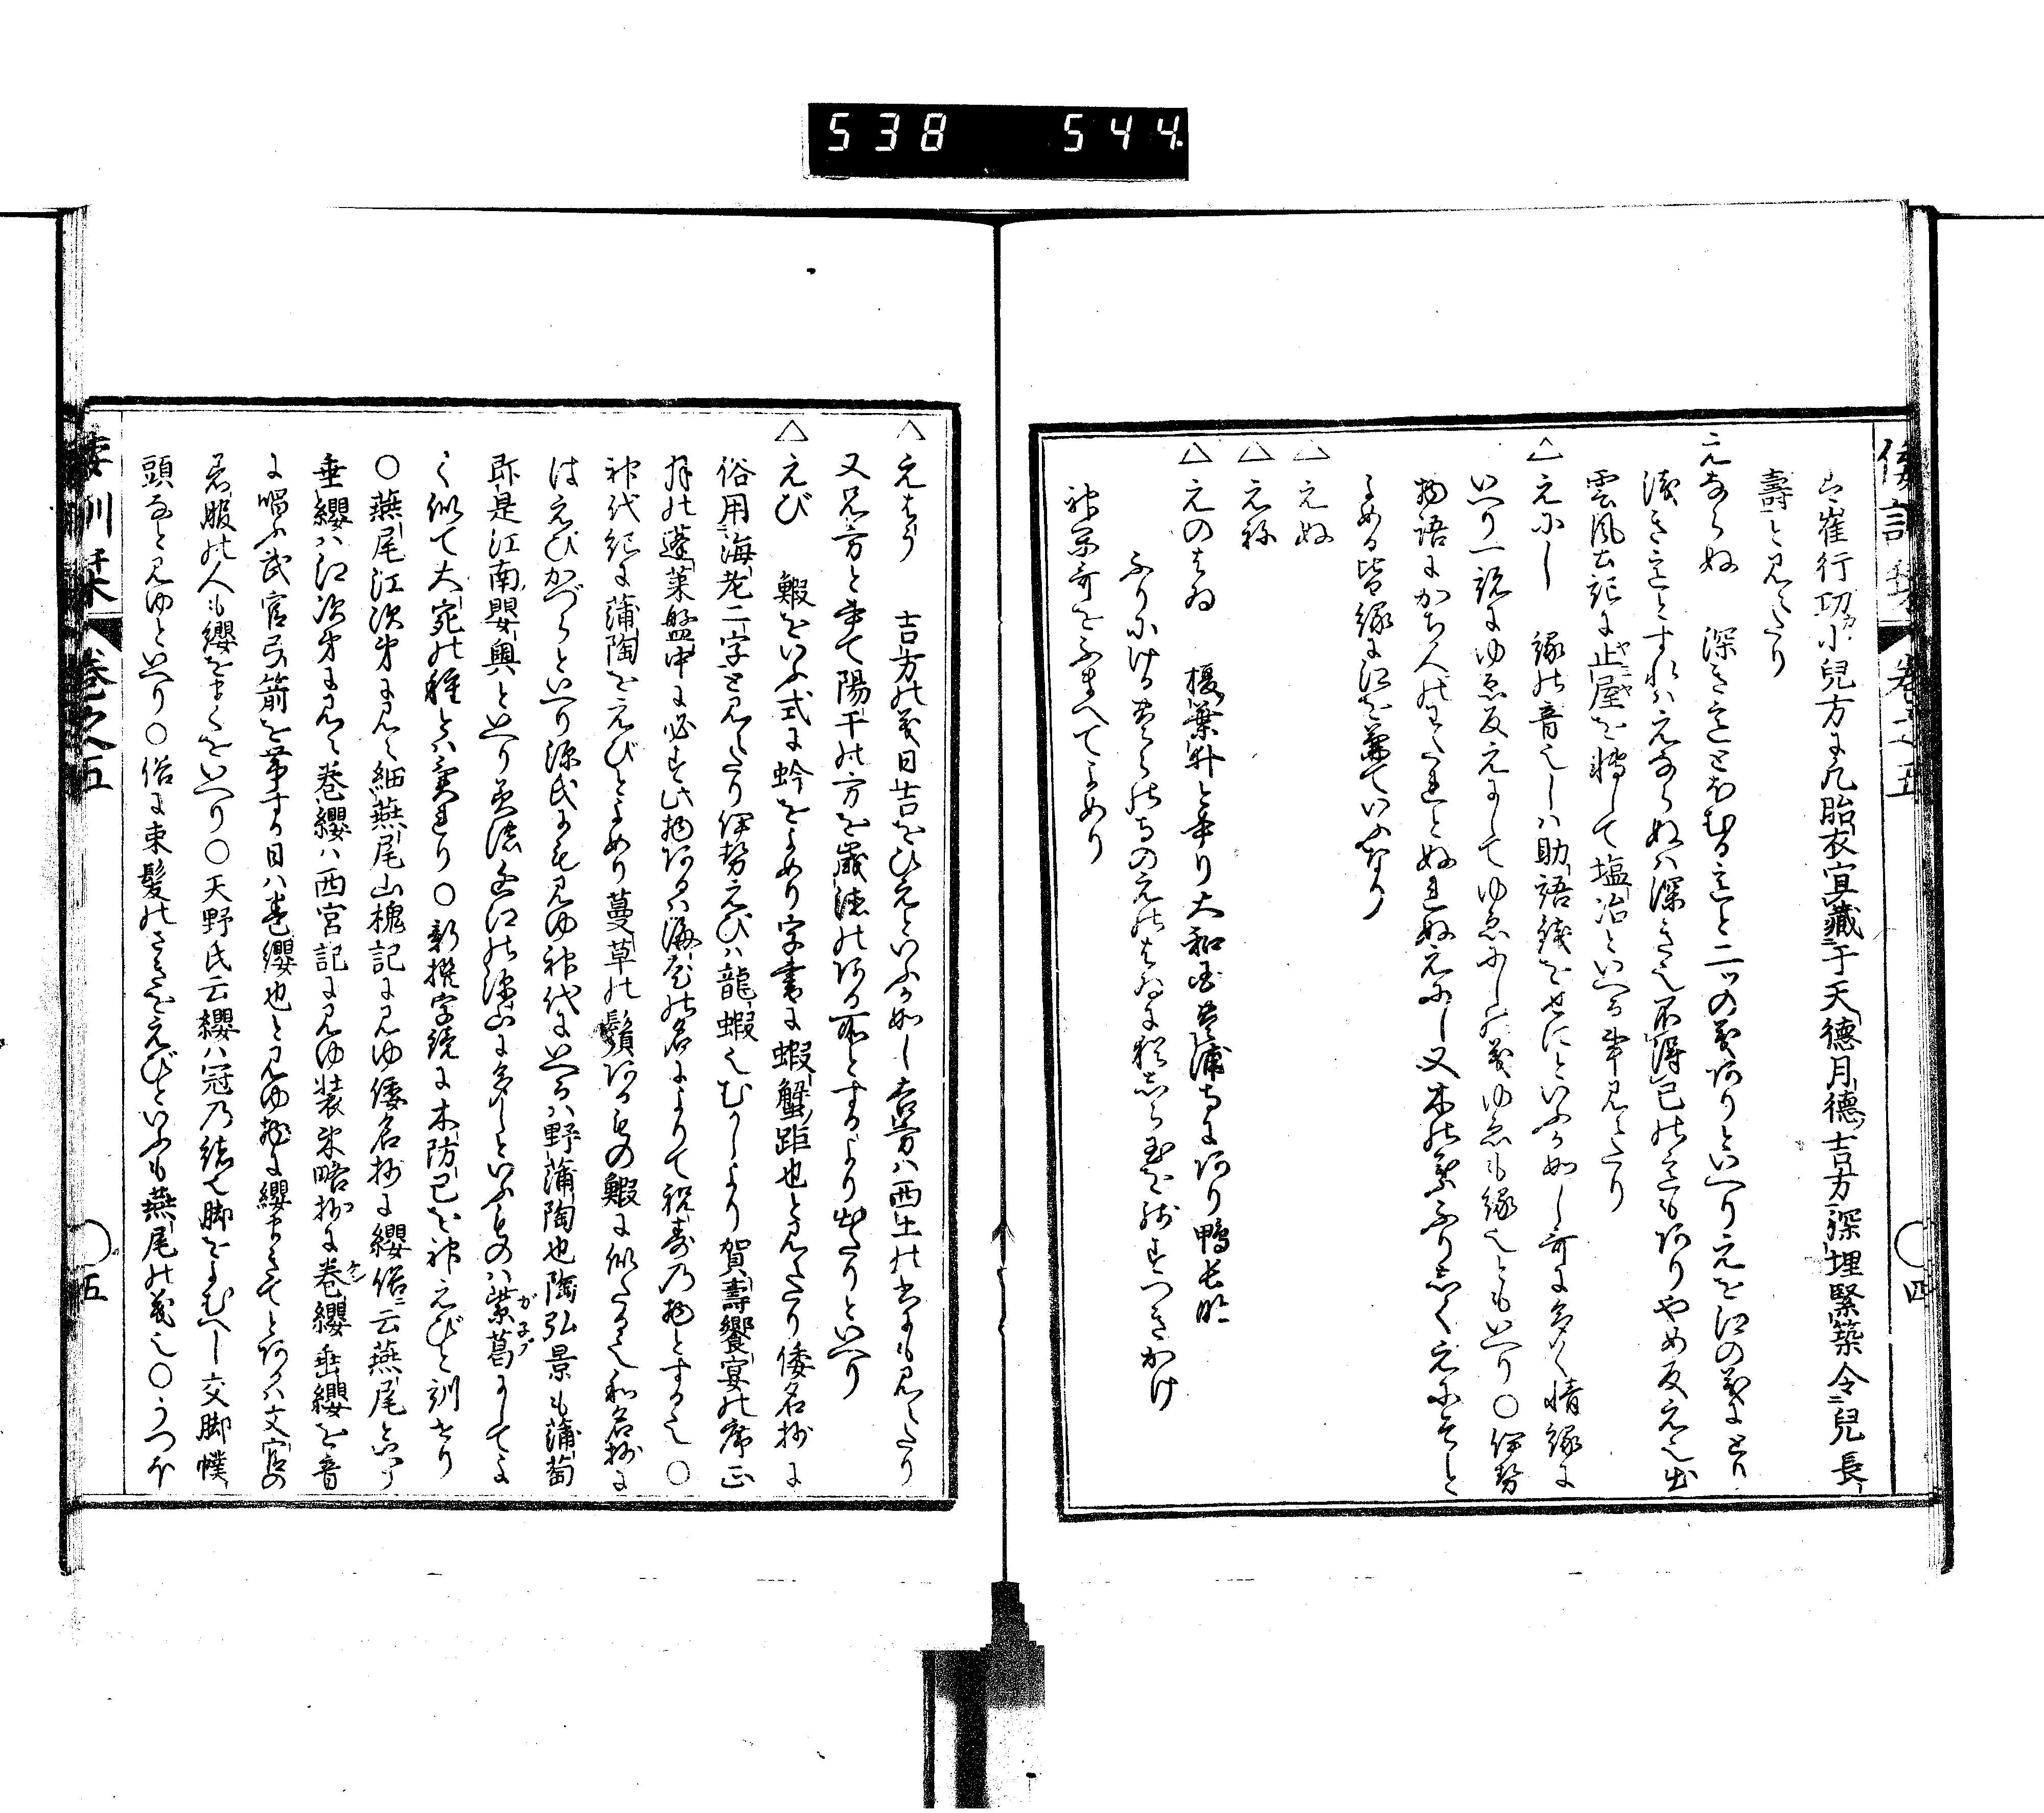 538 544
倭訓栞 巻之五 ○四
に崔行功小兒方に凡胎衣宜藏于天德月德吉方深埋緊築令兒長
壽と見えたり
えならぬ 深き意とほむる意と二ッの義ありといへり えを江の義にとり
淺き意とすれハえならぬハ深き也不得已の意もあり やめ反え也出
雲風土記に止屋を轉して塩冶といへる事見えたり
△えにし 縁の音也しハ助語錢をせにといふか如し哥に多く情縁に
いへり一説にゆゑ反えにしてゆゑにしの義ゆゑも縁也ともいへり○伊勢
物語にかち人のわたれとぬれぬえにし又木の葉ふりしくえにそと
よめる皆縁に江を兼ていふなり
△えぬ
△えね
△えのはゐ 榎葉井と書り大和国豊浦寺にあり鴨長明
ふりにける豊らの寺のえのはゐに猶しら玉を残すつきかけ
神楽哥をふまへてよめり
△えはう 吉方の義日吉をひえといふか如し吉方ハ西土の書にも見えたり
又兄方と書て陽干の方を歳徳のある所とするより出たりといへり
△えび 鰕をいふ式に蛉をよめり字書に蝦蟹距也と見えたり倭名抄に
俗用海老二字と見えたり伊勢えびハ龍蝦也むかしより賀壽饗宴の席正
月の蓬萊盤中に必す此物あるハ海老の名によりて祝壽の物とする也○
神代紀に蒲陶をえびとよめり蔓草の鬚あるもの鰕に似たる也和名抄に
はえひかづらといへり源氏にも見ゆ神代にいへるハ野蒲陶也陶弘景も蒲萄
即是江南蘡薁といへり美濃近江の深山に多しといふものハ紫葛にしてよ
く似て大宛の種とハ異れり○新撰字鏡に木防已を神えびと訓せり
○燕尾江次第に見え細燕尾山槐記に見ゆ倭名抄に纓俗云燕尾といへり
垂纓ハ江次第に見え巻纓ハ西宮記に見ゆ装束略抄に巻纓垂纓を音
に唱ふ武官弓箭を帯する日ハ巻纓也と見ゆ故に纓まきてとあるハ文官の
着服の人も纓をまくをいへり○天野氏云纓ハ冠の緒也脚をよむへし交脚幞
頭なと見ゆといへり○俗に束髪のさきをえびといふも燕尾の義也○うつほ
倭訓栞 巻之五 ○五